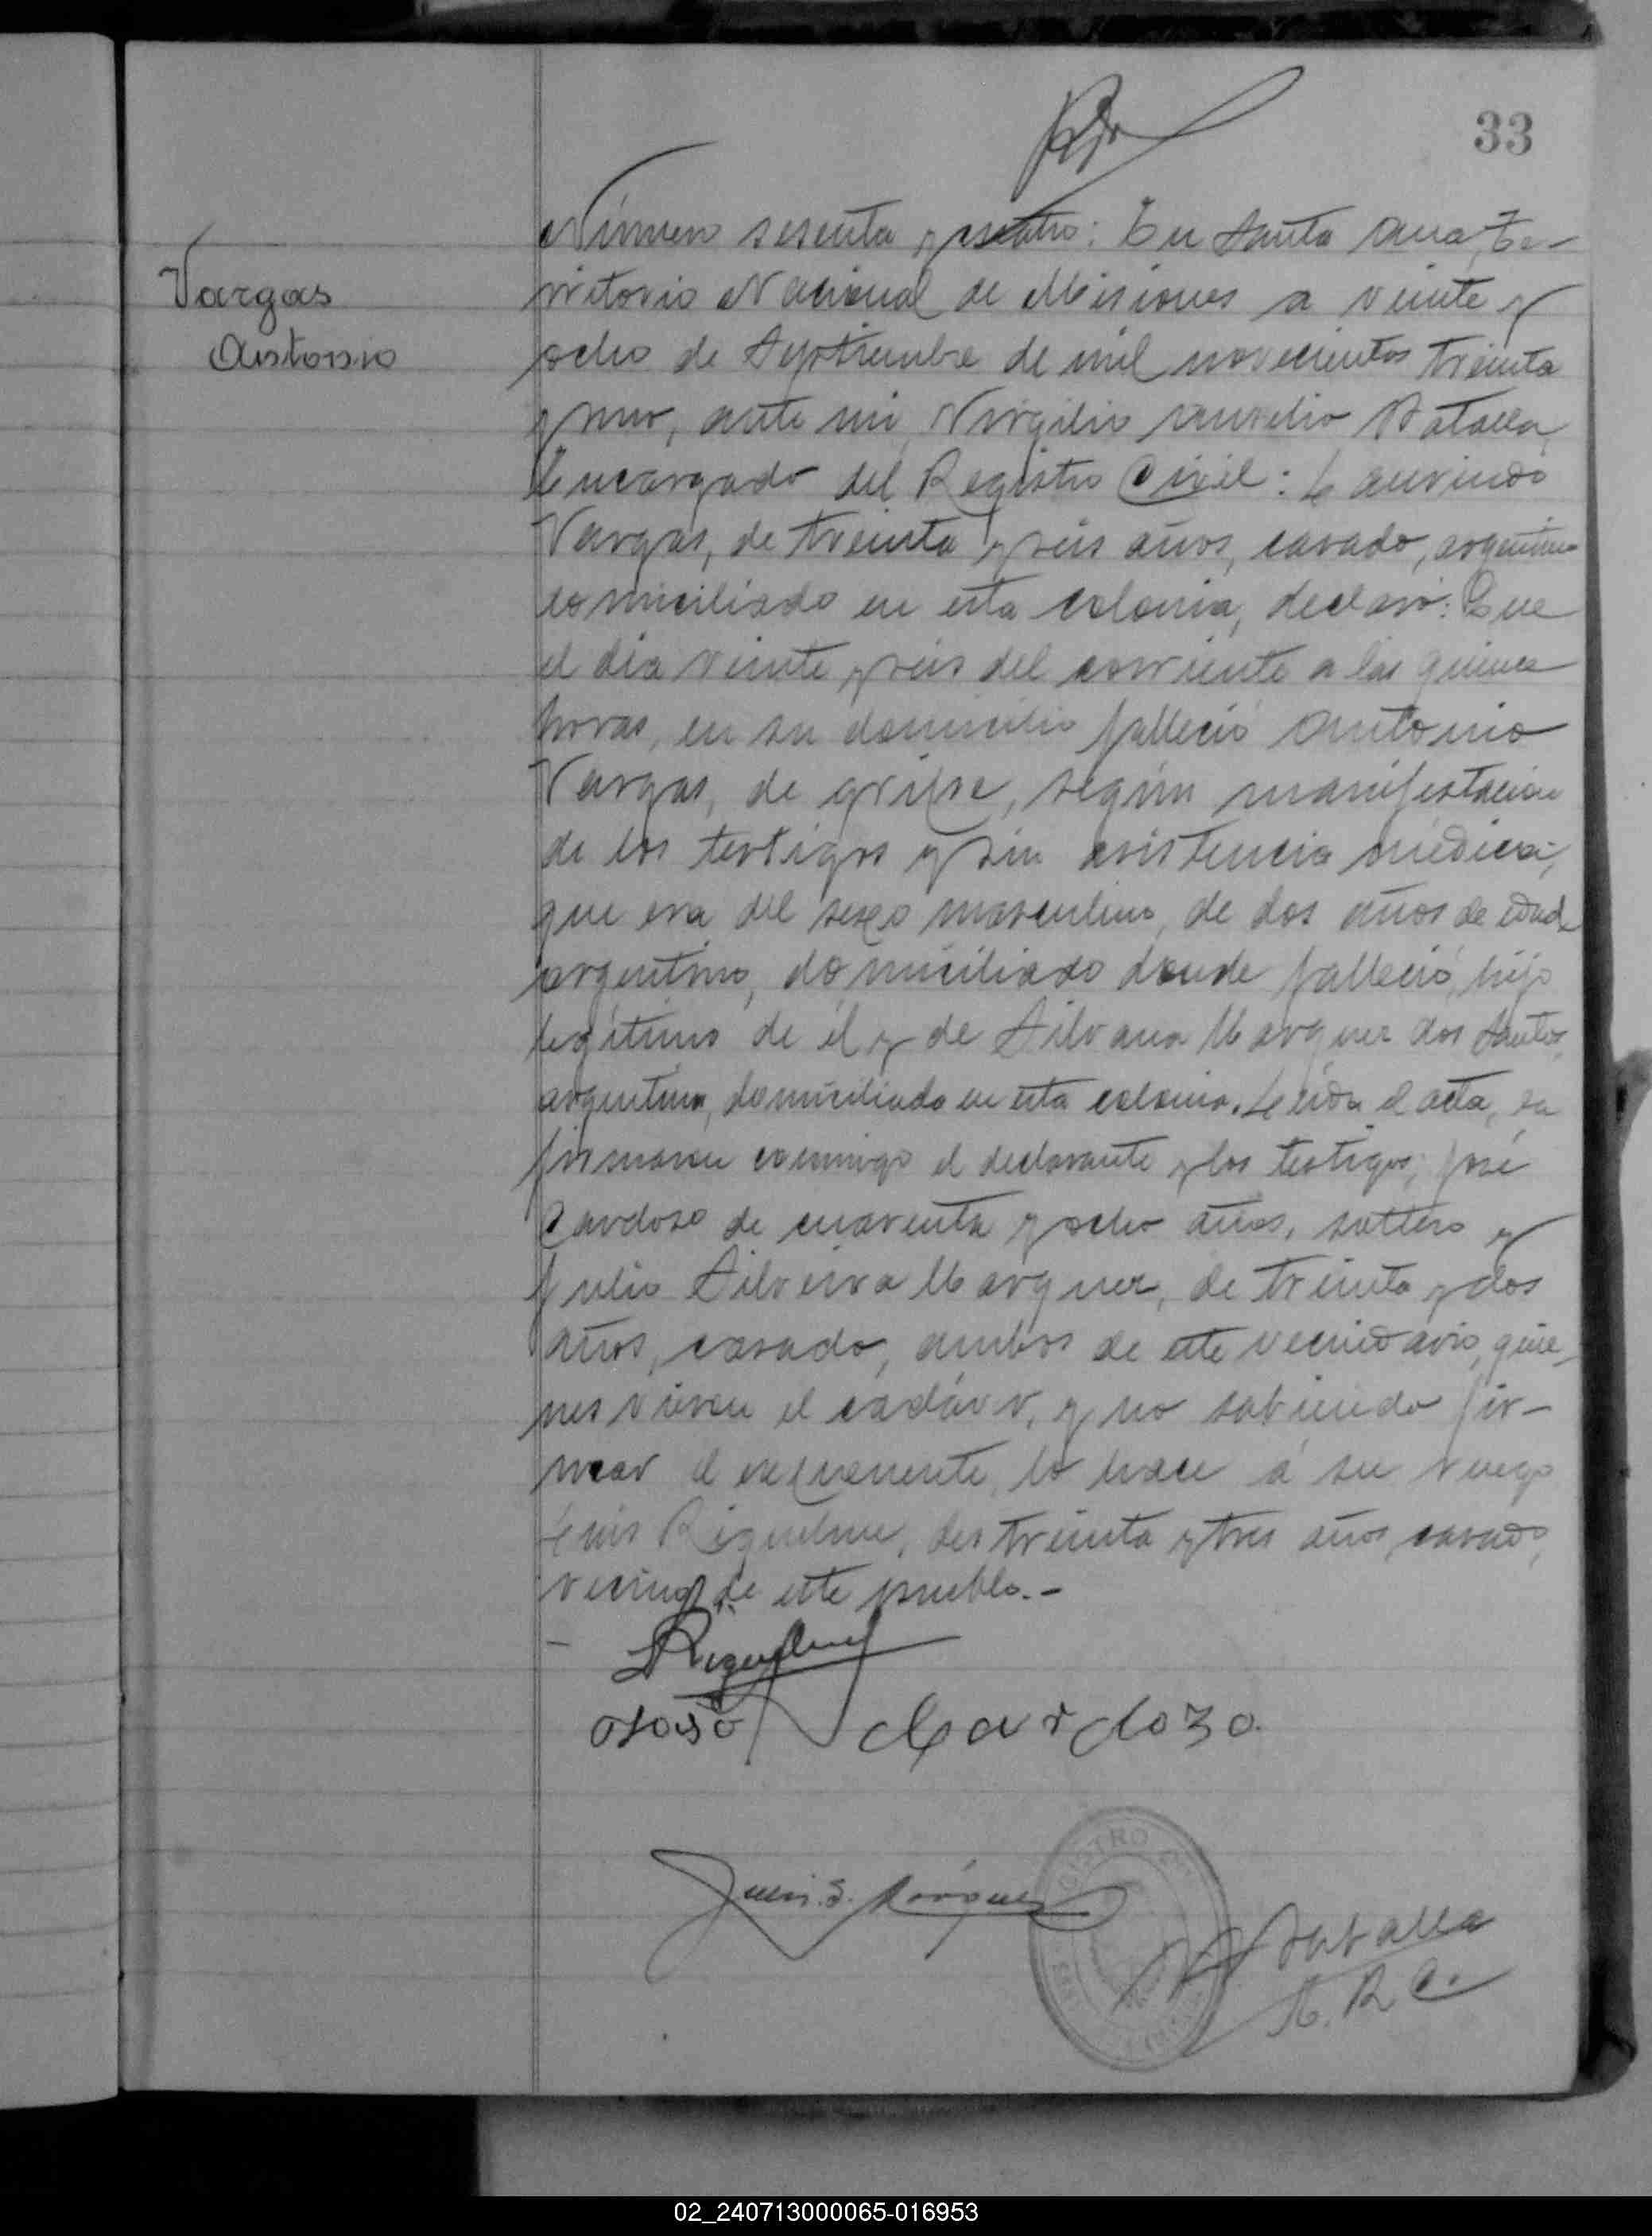 33
Vargas
Antonio
Número sesenta y cuatro: En Santa Ana, Te-
rritorio Nacional de Misiones a veinte y
ocho de Septiembre de mil novecientos treinta
y uno, ante mi, Virgilio Aurelio Batalla,
Encargado del Registro Civil: Laurindo
Vargas, de treinta y seis años, casado, argentino
domiciliado en esta colonia, declaró: Que
el día veinte y seis del corriente a las quince
horas, en su domicilio falleció Antonio
Vargas, de gripe, según manifestación
de los testigos y sin asistencia médica;
que era del sexo masculino, de dos años de edad,
argentino, domiciliado donde falleció, hijo
legítimo de él y de Silvana Marquez dos Santos,
argentina, domiciliada en esta colonia. Leída el acta, la
firmaron conmigo el declarante y los testigos; José
Cardoso de cuarenta y ocho años, soltero y
Julio Silveira Marquez, de treinta y dos
años, casado, ambos de este vecindario, quie-
nes vieron el cadáver, y no sabiendo fir-
mar el exponente, lo hace á su ruego
Luis Riquelme, de treinta y tres años, casado,
vecino de este pueblo.-
LRiquelme
Cardozo.
Julio. S. Márquez
Batalla
E. R. C.
02_240713000065-016953